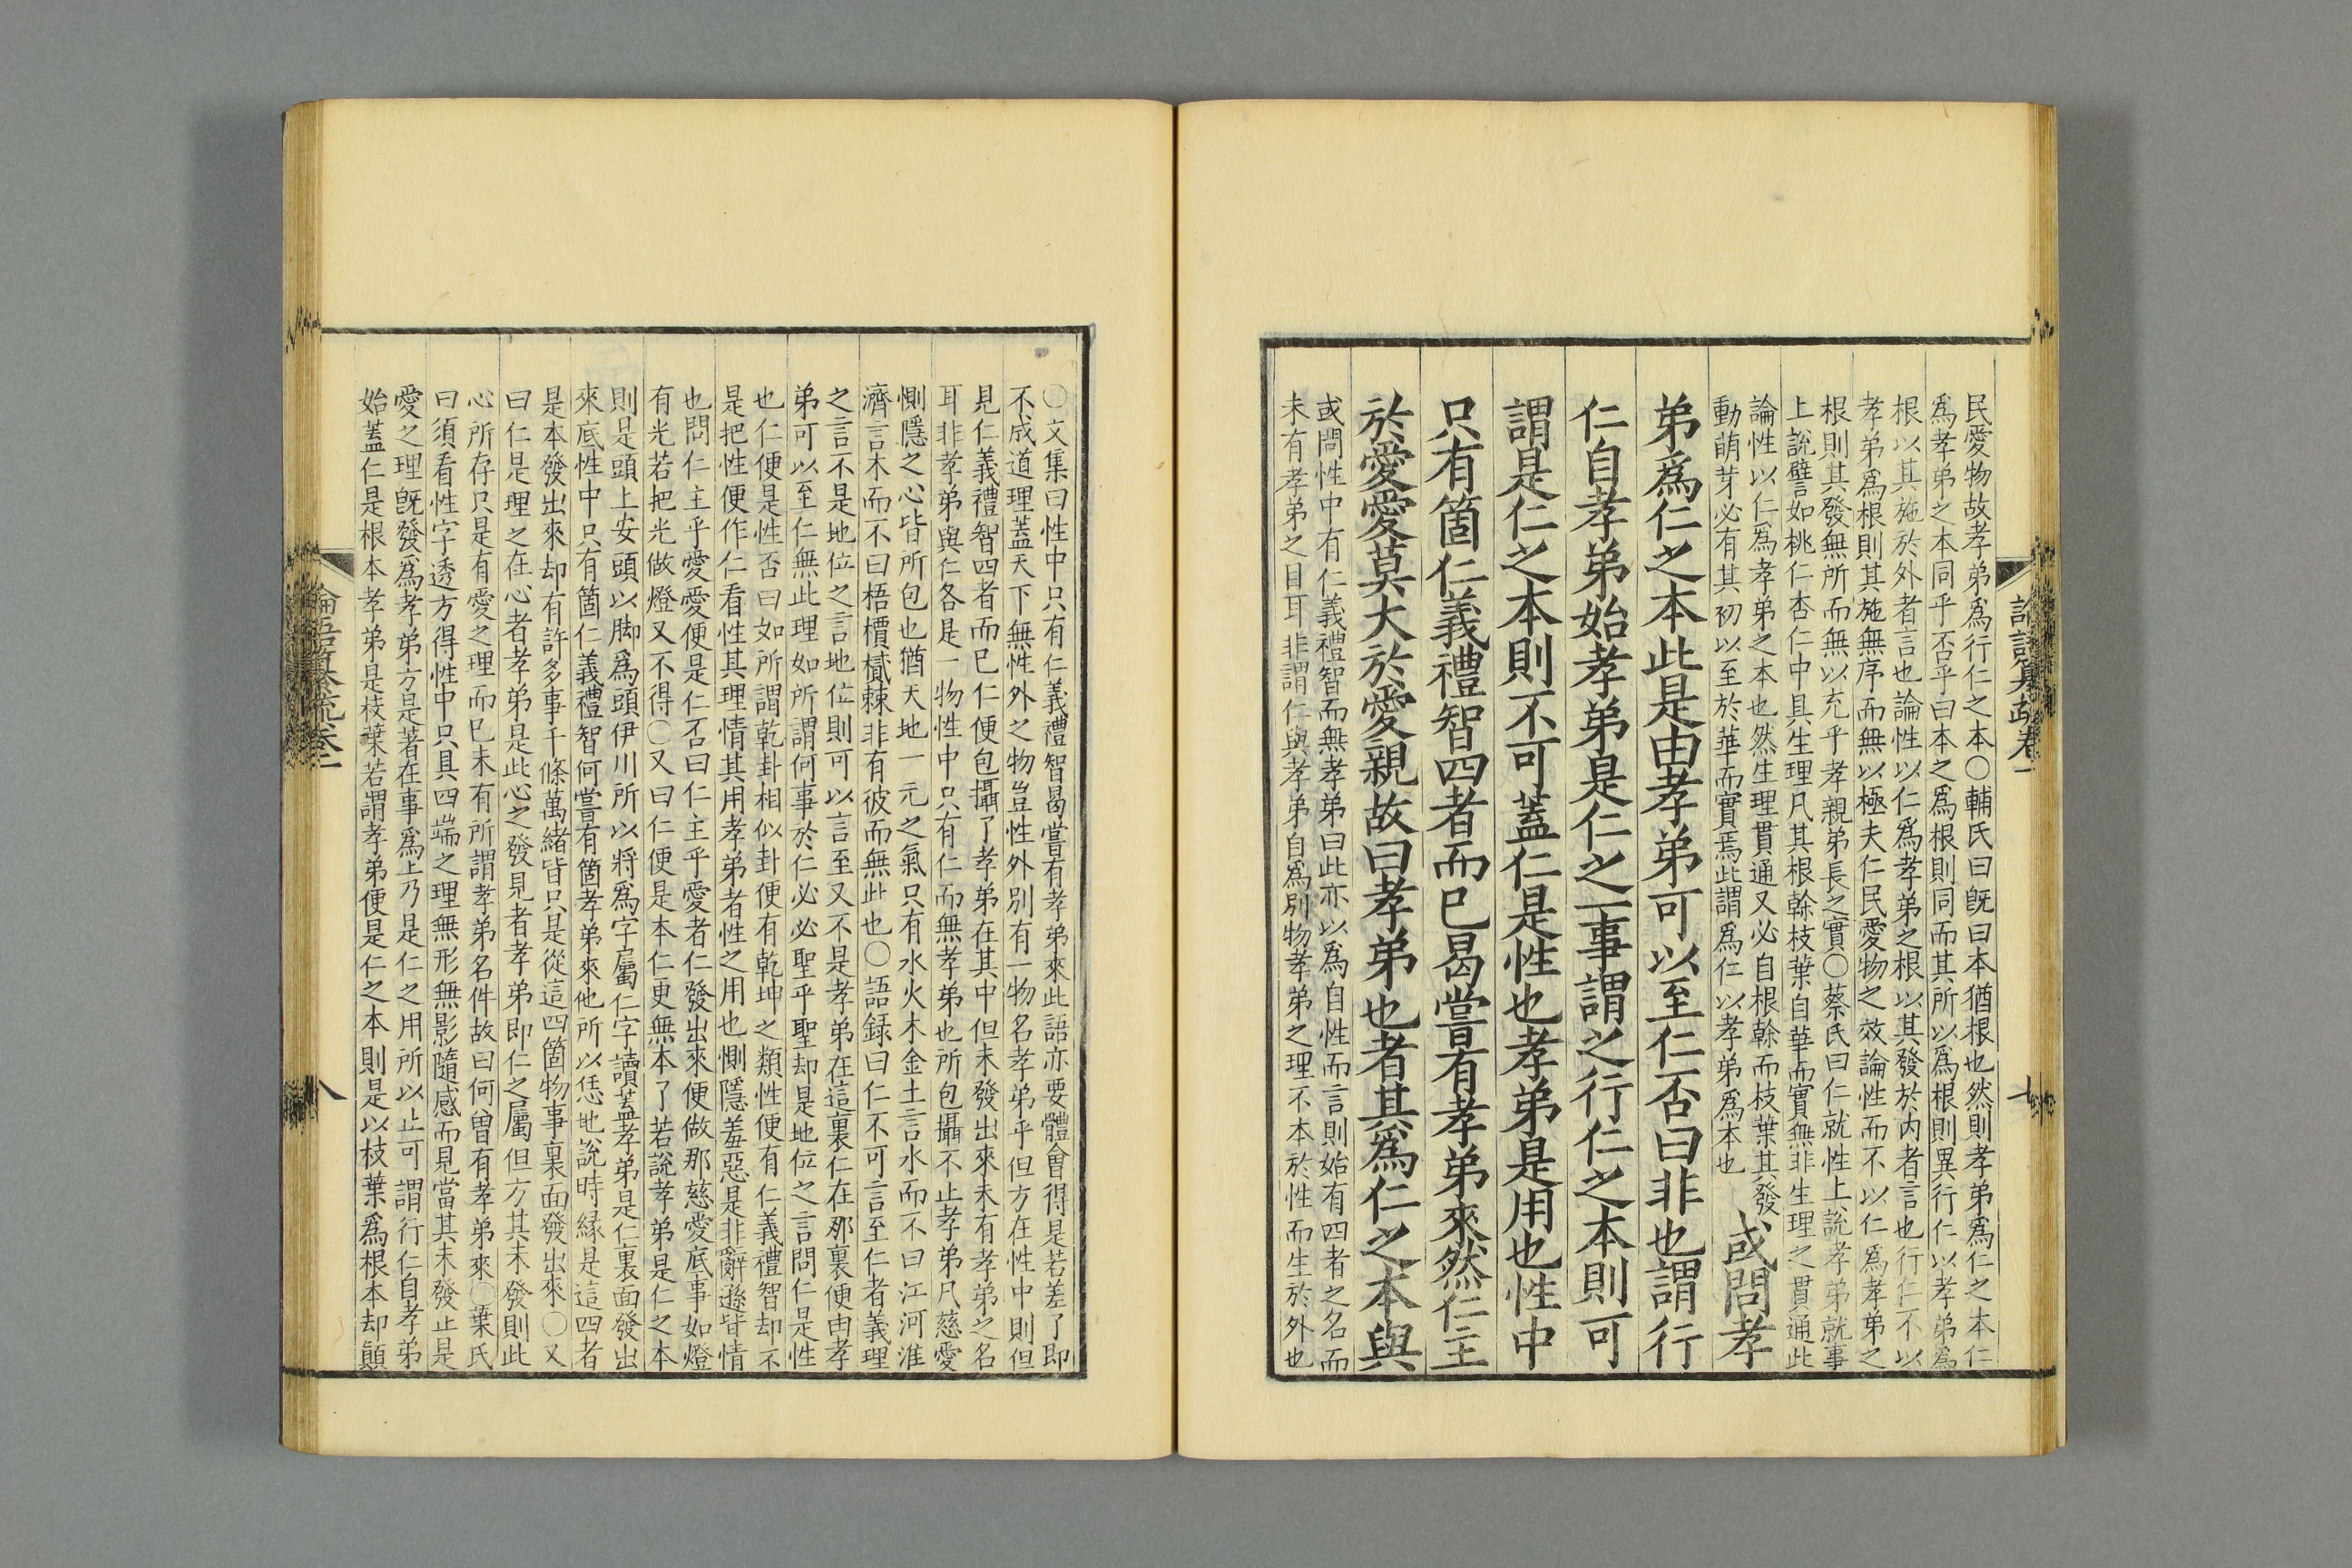 民愛物故孝弟爲行仁之本〇輔氏曰旣曰本猶根也然則孝弟爲仁之本仁
爲孝弟之本同乎否乎曰本之爲根則同而其所以爲根則異行仁以孝弟爲
根以其施於外者言也論性以仁爲孝弟之根以其發於内者言也行仁不以
孝弟爲根則其施無序而無以極夫仁民愛物之效論性而不以仁爲孝弟之
根則其發無所而無以充乎孝親弟長之實〇蔡氏曰仁就性上說孝弟就事
上說譬如桃仁杏仁中具生理凡其根榦枝葉自華而實無非生理之貫通此
論性以仁爲孝弟之本也然生理貫通又必自根榦而枝葉其發
動萌芽必有其初以至於華而實焉此謂爲仁以孝弟爲本也
或問孝
弟爲仁之本此是由孝弟可以至仁否曰非也謂行
仁自孝弟始孝弟是仁之一事謂之行仁之本則可
謂是仁之本則不可蓋仁是性也孝弟是用也性中
只有箇仁義禮智四者而已曷嘗有孝弟來然仁主
於愛愛莫大於愛親故曰孝弟也者其爲仁之本與
或問性中有仁義禮智而無孝弟曰此亦以爲自性而言則始有四者之名而
未有孝弟之目耳非謂仁與孝弟自爲別物孝弟之理不本於性而生於外也
〇文集曰性中只有仁義禮智曷嘗有孝弟來此語亦要體會得是若差了即
不成道理蓋天下無性外之物豈性外別有一物名孝弟乎但方在性中則但
見仁義禮智四者而已仁便包攝了孝弟在其中但未發出來未有孝弟之名
耳非孝弟與仁各是一物性中只有仁而無孝弟也所包攝不止孝弟凡慈愛
惻隱之心皆所包也猶天地一元之氣只有水火木金土言水而不曰江河淮
濟言木而不曰梧檟樲棘非有彼而無此也〇語錄曰仁不可言至仁者義理
之言不是地位之言地位則可以言至又不是孝弟在這裏仁在那裏便由孝
弟可以至仁無此理如所謂何事於仁必必聖乎聖却是地位之言問仁是性
也仁便是性否曰如所謂乾卦相似卦便有乾坤之類性便有仁義禮智却不
是把性便作仁看性其理情其用孝弟者性之用也惻隱羞惡是非辭遜皆情
也問仁主乎愛愛便是仁否曰仁主乎愛者仁發出來便做那慈愛底事如燈
有光若把光做燈又不得〇又曰仁便是本仁更無本了若說孝弟是仁之本
則是頭上安頭以脚爲頭伊川所以將爲字屬仁字讀蓋孝弟是仁裏面發出
來底性中只有箇仁義禮智何嘗有箇孝弟來他所以恁地說時緣是這四者
是本發出來却有許多事千條萬緒皆只是從這四箇物事裏面發出來〇又
曰仁是理之在心者孝弟是此心之發見者孝弟即仁之屬但方其未發則此
心所存只是有愛之理而已未有所謂孝弟名件故曰何曾有孝弟來〇葉氏
曰須看性字透方得性中只具四端之理無形無影隨感而見當其未發止是
愛之理旣發爲孝弟方是著在事爲上乃是仁之用所以止可謂行仁自孝弟
始蓋仁是根本孝弟是枝葉若謂孝弟便是仁之本則是以枝葉爲根本却顚
論語纂疏卷一
八